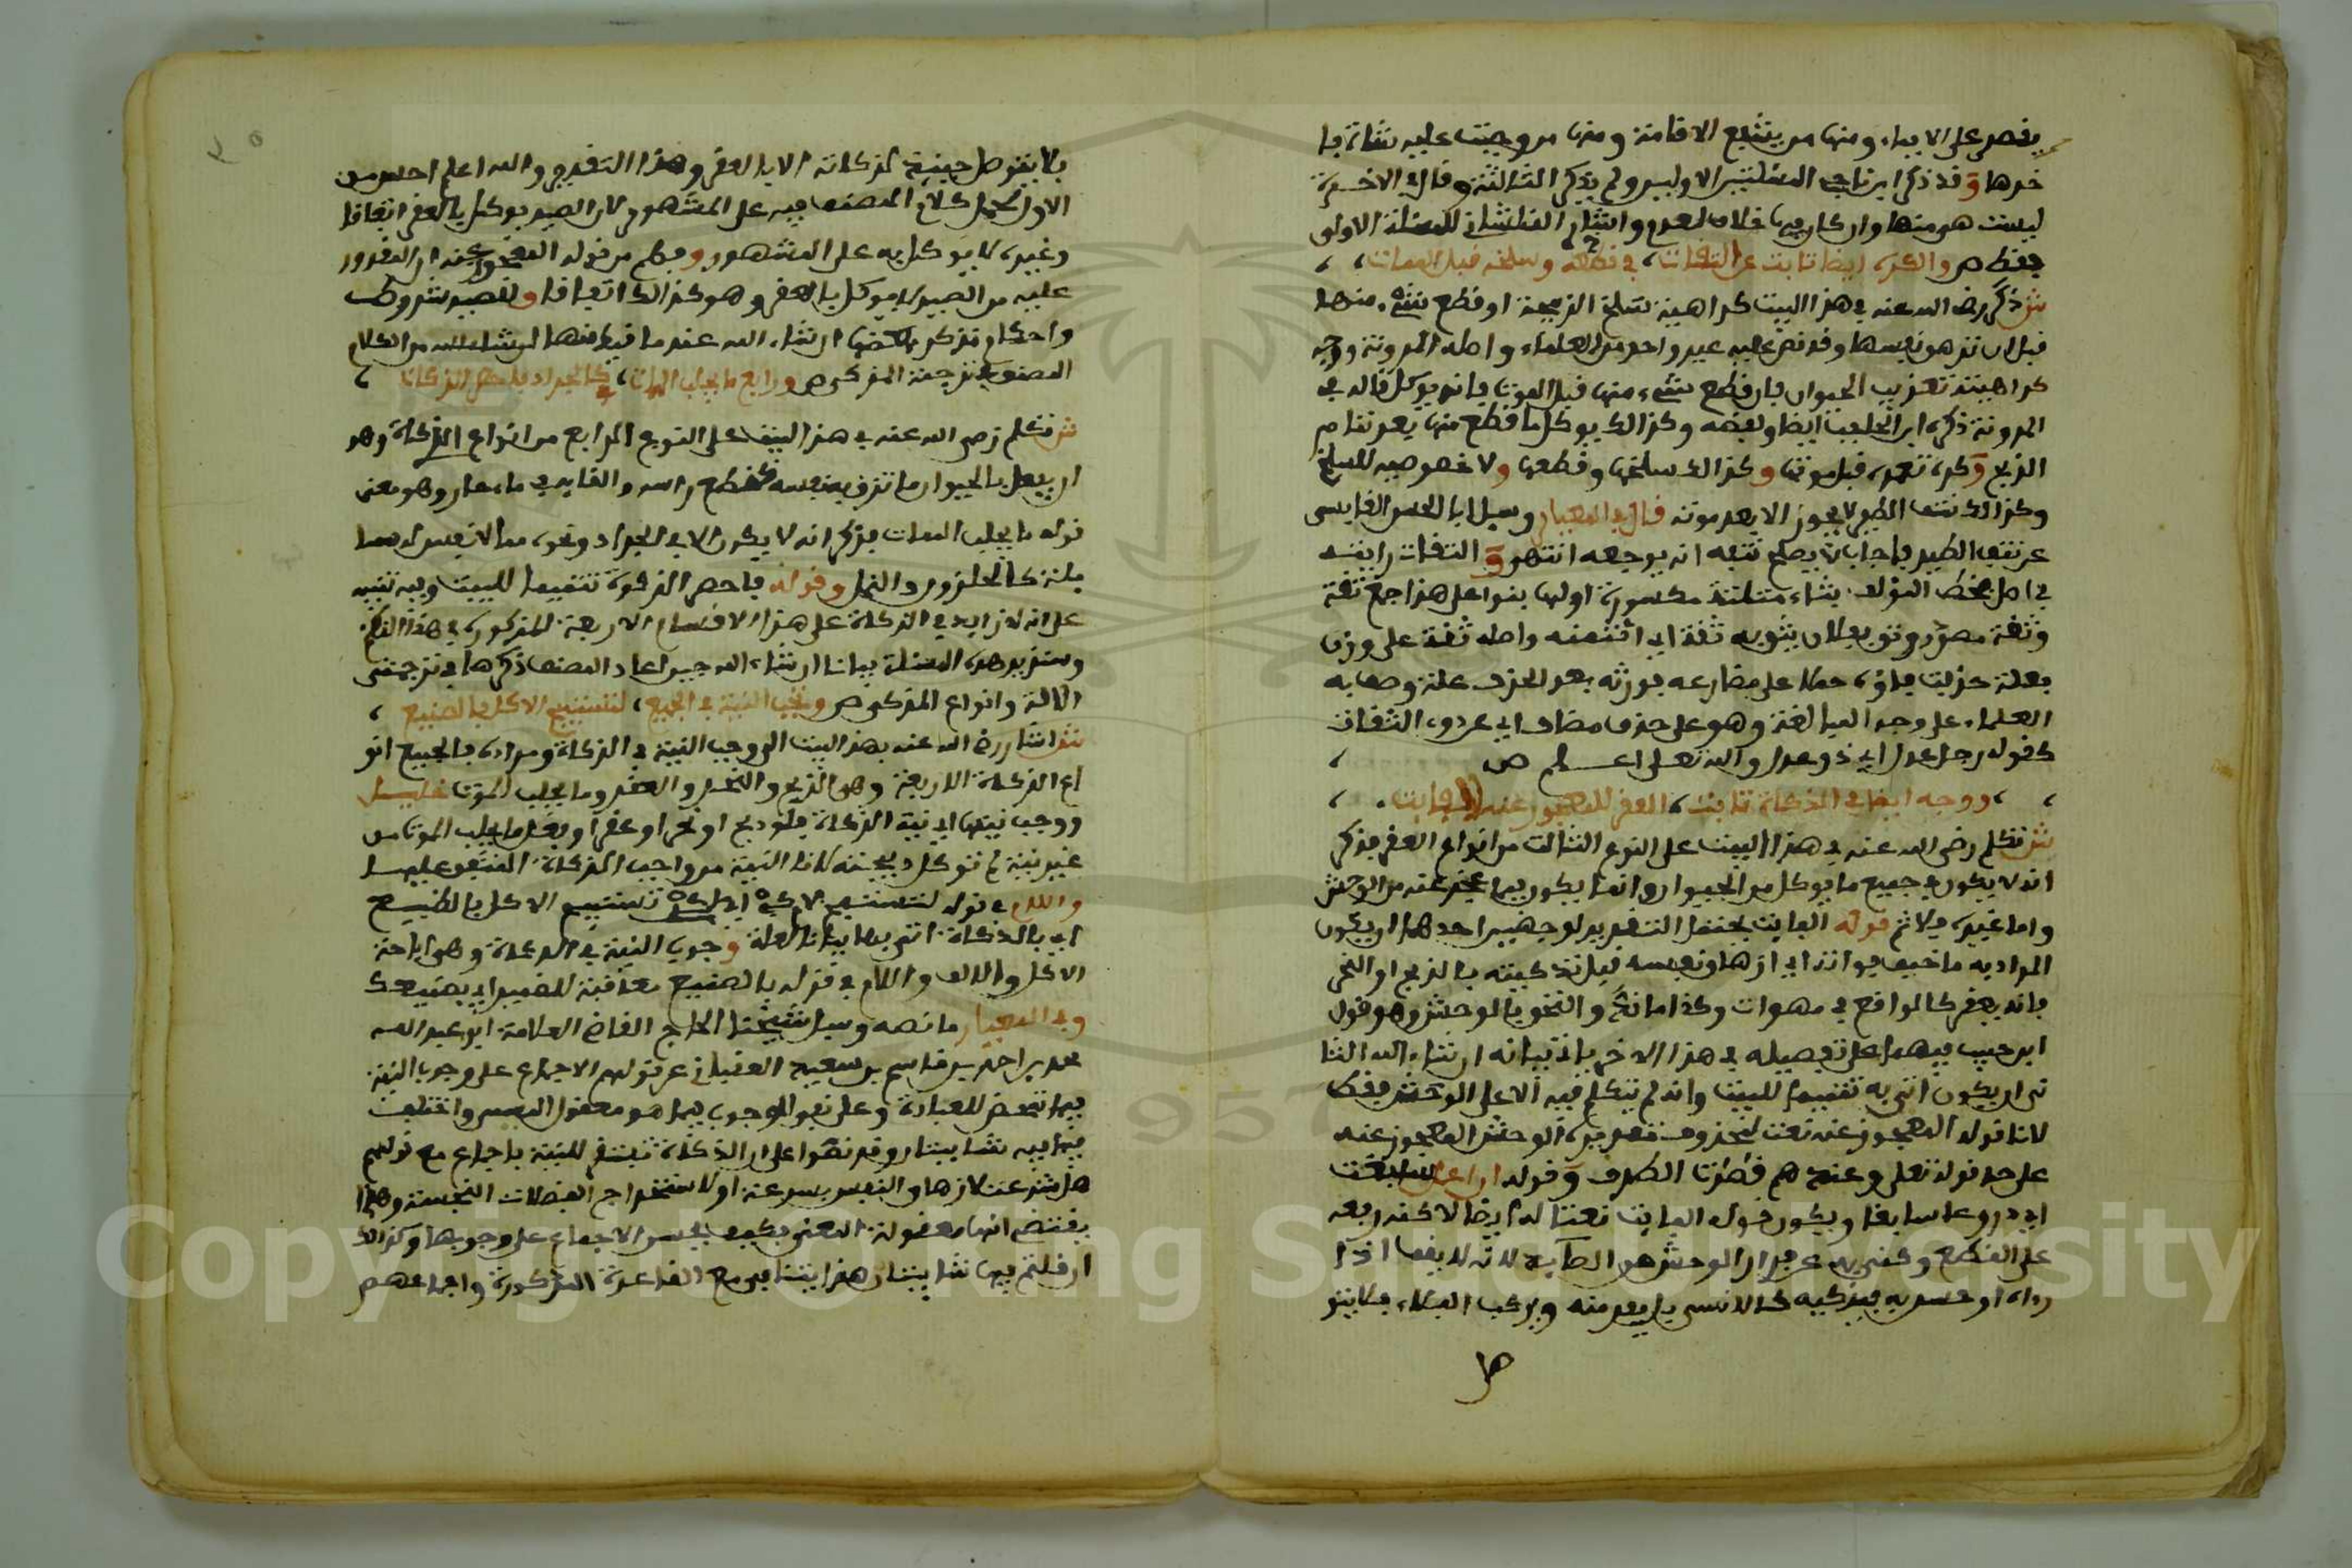 خرها وقد ذكر ابن ناجي المسئلتين الاوليين ولم يذكر الثالثة وقال في الاخيرة
ليست هي منها وان كان فيها خلاف المعدم واشار القلشاني للمسئلة الاولى
فقط ص والكره ايضا ثابت عن الثقات، في قطعه وسلخه قبل الممات،
ش ذكر رضي الله عنه في هذا البيت كراهية سلخ الذبيحة او قطع شيء منها
قبل ان تزهق نفسها وقد نص عليه غير واحد من العلماء واصله المدونة ووجه
كراهيته تعذيب الحيوان فان قطع شيء منها قبل الموت فانه يوكل قاله في
المدونة ذكره ابن الجلاب ايضا ولفظه وكذالك يوكل ما قطع منها بعد تمام
الذبح وكره تعمده قبل موتها وكذالك سلخها وقطعها ولا خصوصية للسلخ
وكذالك نتف الطير لا يجوز الا بعد موته قال في المعيار وسيل ابا الحسن القابسي
عن نتف الطير فاجاب لا يصلح نتفه انه يوجعه انتهى والثقات رايته
في اصل بخط المؤلف بثاء مثلثة مكسورة اولها بنوا على هذا جمع ثقة
وثقة مصدر وثق بفلان يثق به ثقة اي ائتمنه واصله ثقة على وزن
فعلة حذفت فاؤه حملا على مضارعه فوزنه بعد الحذف علة وصف به
العلماء على وجه المبالغة وهو على حذف مضاف اي عن ذوي الثقات
كقوله رجل عدل اي ذو عدل والله تعلى اعلم ص
، ووجه ايضا في الذكاة ثابت، العقر للمعجوز عنه الفايت،
ش تكلم رضي الله عنه في هذا البيت على النوع الثالث من انواع العقر فذكر
انه لا يكون في جميع ما يوكل من الحيوان وانما يكون فيما عجز عنه من الوحش
واما غيره فلا ثم قوله الفايت يحتمل التقدير لوجهين احدهما ان يكون
المراد به ما خيف فواته اي ازهاق نفسه قبل تذكيته بالذبح او النحر
فانه يعقر كالواقع في مهوات وكذا ما ند والتحق بالوحش وهو قول
ابن حبيب فيهما على تفصيله في هذا الاخر ياتي بيانه ان شاء الله الثا
ني ان يكون اتى به تتميما للبيت وانه لم يتكلم فيه الا على الوحش فقط
لان قوله المعجوز عنه نعت لمحذوف تقديره الوحش المعجوز عنه
على حد قوله تعلى وعندهم قاصرات الطرف وقوله ان اعمل سابغات
اي دروعا سابغات ويكون قوله الفايت نعتا له ايضا لاكنه رفعه
على القطع وكنى به عن فرار الوحش من الصايد لانه لا يقف اذا
رءاه او حس به فيذكيه كالانسي بل يبعد منه ويركب الفلاء فلا يتو
ص
فلا يتوصل حينئذ لذكاته الا بالعقر وهذا التقدير والله اعلم احسن من
الاول لحمل كلام المصنف فيه على المشهور لان الصيد يوكل بالعقر اتفاقا
وغيره لا يوكل به على المشهور وفهم من قوله المعجوز عنه ان المقدور
عليه من الصيد لا يوكل بالعقر وهو كذالك اتفاقا وللصيد شروط
واحكام نذكر بعضها ان شاء الله عند ما
المصنف في ترجمة المذكى ص ورابع ما يجلب الممات، كالجراد فاحص الذكات،
ش تكلم رضي الله عنه في هذا البيت على النوع الرابع من انواع الذكاة وهو
ان يفعل بالحيوان ما تزهق به نفسه كقطع راسه والقايه في ماء حار وهو معنى
قوله ما يجلب الممات فذكر انه لا يكون الا في الجراد ونحوه مما لا نفس له سا
يلة كالحلزون والنمل وقوله فاحص الذكوة تتميما للبيت وفيه تنبيه
على انه لا زايد في الذكاة على هذا الاقسام الاربعة المذكورة في هذا النظم
وسنزيد هذه المسئلة بيانا ان شاء الله حين اعاد المصنف ذكرها في ترجمتي
الالة وانواع المذكى ص وتجب النية في الجميع، لتستبيح الاكل بالصنيع،
ش اشار رضي الله عنه بهذا البيت الى وجوب النية في الذكاة ومراده بالجميع انو
اع الذكاة الاربعة وهي الذبح والنحر والعقر وما يجلب الموت خليل
ووجب نيتها اي نية الذكاة فلو ذبح او نحر او عقر او فعل ما يجلب الموت من
غير نية لم توكل ذبيحته لان النية من واجب الذكاة المتفق عليها
واللام في قوله لتستبيح لام كي اي لكي تستبيح الاكل بالصنيع
اي بالذكاة اتى بها بيانا لعلة وجوب النية في الذكاة وهي اباحة
الاكل والالف واللام في قوله بالصنيع معاقبة للضمير اي بصنيعك
وفي المعيار ما نصه وسيل شيخنا الحاج القاضي العلامة ابو عبد الله
محمد بن احمد بن قاسم بن سعيد العقباني عن قولهم الاجماع على وجوب النية
فيما تمحض للعبادة وعلى نفي الوجوب فيما هو معقول المعنى واختلف
فيما فيه شايبتان وقد نصوا على ان الذكاة تفتقر للنية باجماع مع قولهم
هل شرعت لازهاق النفس بسرعة او لاستخراج الفضلات النجسة وهذا
يقتضي انها معقولة المعنى فكيف يحسن الاجماع على وجوبها وكذالك
ان قلتم فيها شايبتان هذا يتنافى مع القاعدة المذكورة واجماعهم